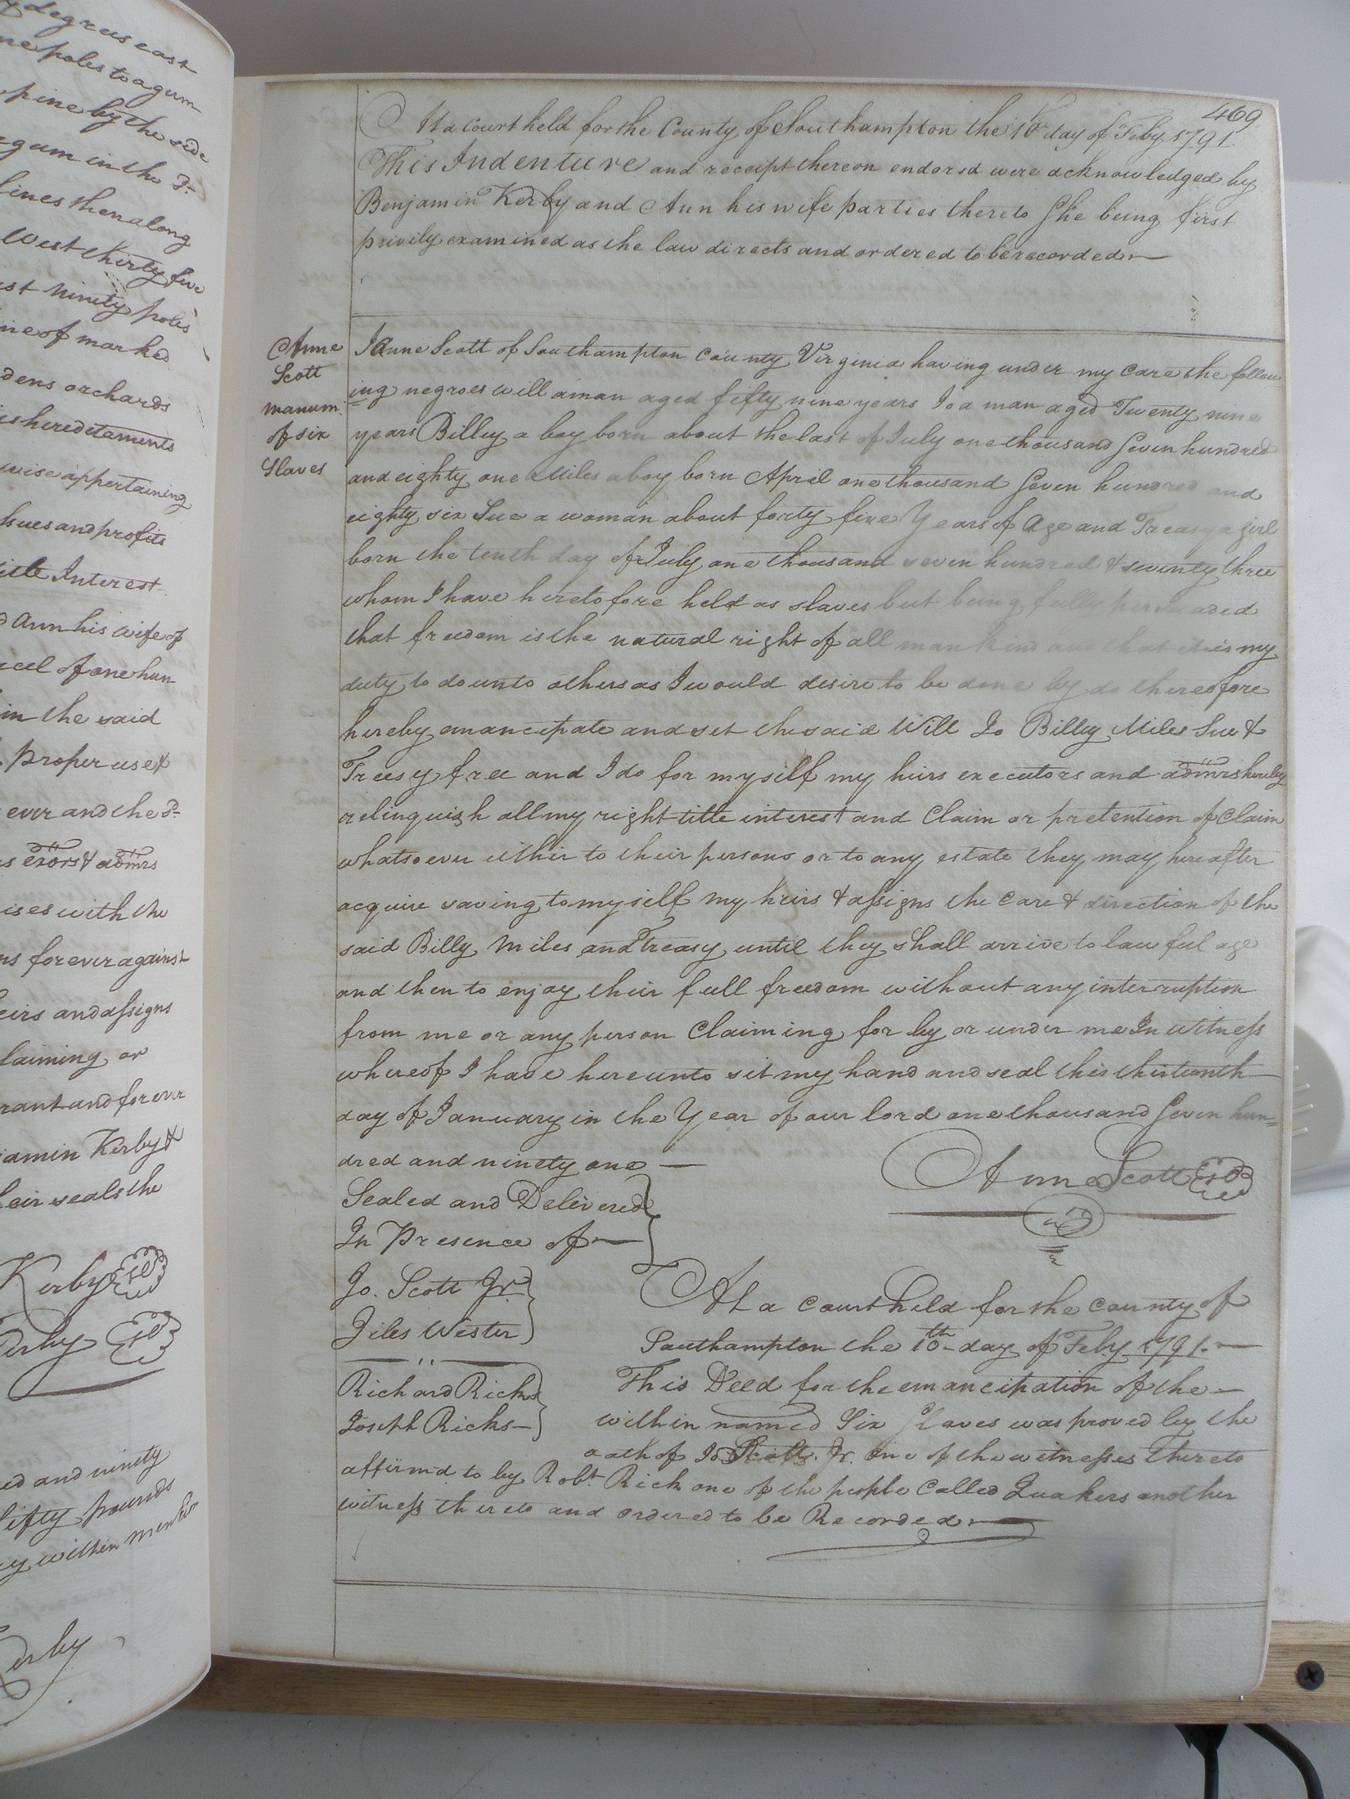 y degrees east
ne poles to a gum
pine by the side
gum in the sd
lines then along
West thirty five
st ninety poles
ine of marked
dens orchards
is hereditaments
wise appertaining
Issues and profits
title Interest
d Ann his wife of
rcel of one hun
in the said
proper use &
ever and the sd
s exors & admrs
ises with the
ns forever against
eirs and assigns
laiming or
rant and forever
jamin Kerby &
heir seals the
Kerby
Kerby
ed and ninety
fifty pounds
y within mention
Kerby
469
At a Court held for the County of Southampton the 10th day of Feby 1791
This Indenture and receipt thereon endorsd were acknowledged by
Benjamin Kerby and Ann his wife parties thereto She being first
privily examined as the law directs and ordered to be recorded
Anne
Scott
manum.
of six
Slaves
I Anne Scott of Southampton County Virginia having under my care the follow
ing negroes will a man aged fifty nine years Jo a man aged Twenty nine
years Billey a boy born about the last of July one thousand Seven hundred
and eighty one Miles a boy born April one thousand Seven hundred and
eighty six Sue a woman about forty five Years of Age and Treasy a girl
born the tenth day of July one thousand seven hundred & seventy three
whom I have heretofore held as slaves but being fully persuaded
that freedom is the natural right of all man kind and that it is my
duty to do unto others as I would desire to be done by do therefore
hereby emancipate and set the said Will Jo Billey Miles Sue &
Treesy free and I do for myself my heirs executors and admrs hereby
relinquish all my right title interest and Claim or pretention of Claim
whatsoever either to their persons or to any estate they may hereafter
acquire saving to myself my heirs & assigns the Care & direction of the
said Billy Miles and Treasy until they shall arrive to lawful age
and then to enjoy their full freedom without any interruption
from me or any person Claiming for by or under me In witness
whereof I have hereunto set my hand and seal this thirteenth
day of January in the Year of our lord one thousand Seven hun=
dred and ninety one
Anne Scott
Sealed and Delivered
In Presence of
Jo. Scott Jr.
Jiles Wester
Richard Ricks
Joseph Ricks
At a Court Held for the County of
Southampton the 10th day of Feby 1791.
This Deed for the emancipation of the
within named Six Slaves was proved by the
oath of Jo Scott Jr. one of the witnesses thereto
affirmd to by Robt Rick one of the people Called Quakers another
witness thereto and ordered to be Recorded